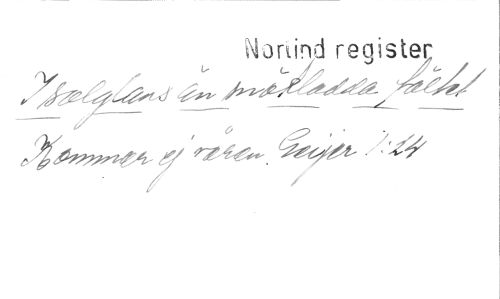 Norlind register
I solglans än snöklädda fältet
Kommer ej våren. Geijer 1:24